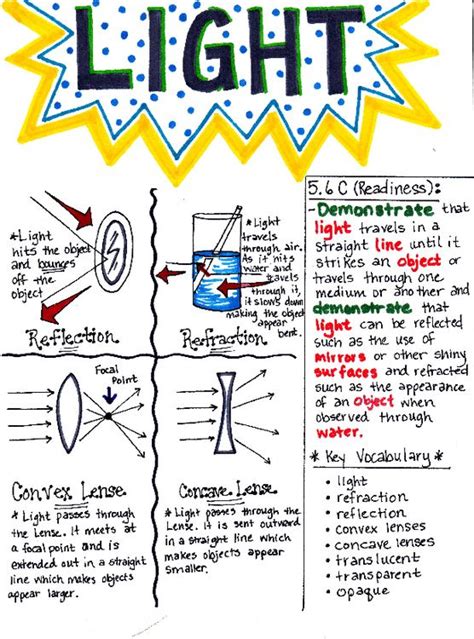 LIGHT
* Light
hits the object
and bounces
off the
object
Reflection
* Light
travels
through air.
As it hits
water and
travels
through it,
it slows down
making the object
appear
bent.
Refraction
Focal
Point
Convex Lense
* Light passes through
the Lense. It meets at
a focal point and is
extended out in a straight
line which makes objects
appear larger.
Concave Lense
* Light passes through the
Lense. It is sent outward
in a straight line which
makes objects appear
smaller.
5.6 C (Readiness):
- Demonstrate that
light travels in a
straight line until it
strikes an object or
travels through one
medium or another and
demonstrate that
light can be reflected
such as the use of
mirrors or other shiny
surfaces and refracted
such as the appearance
of an object when
observed through
water.
* Key Vocabulary *
• light
• refraction
• reflection
• convex lenses
• concave lenses
• translucent
• transparent
• opaque